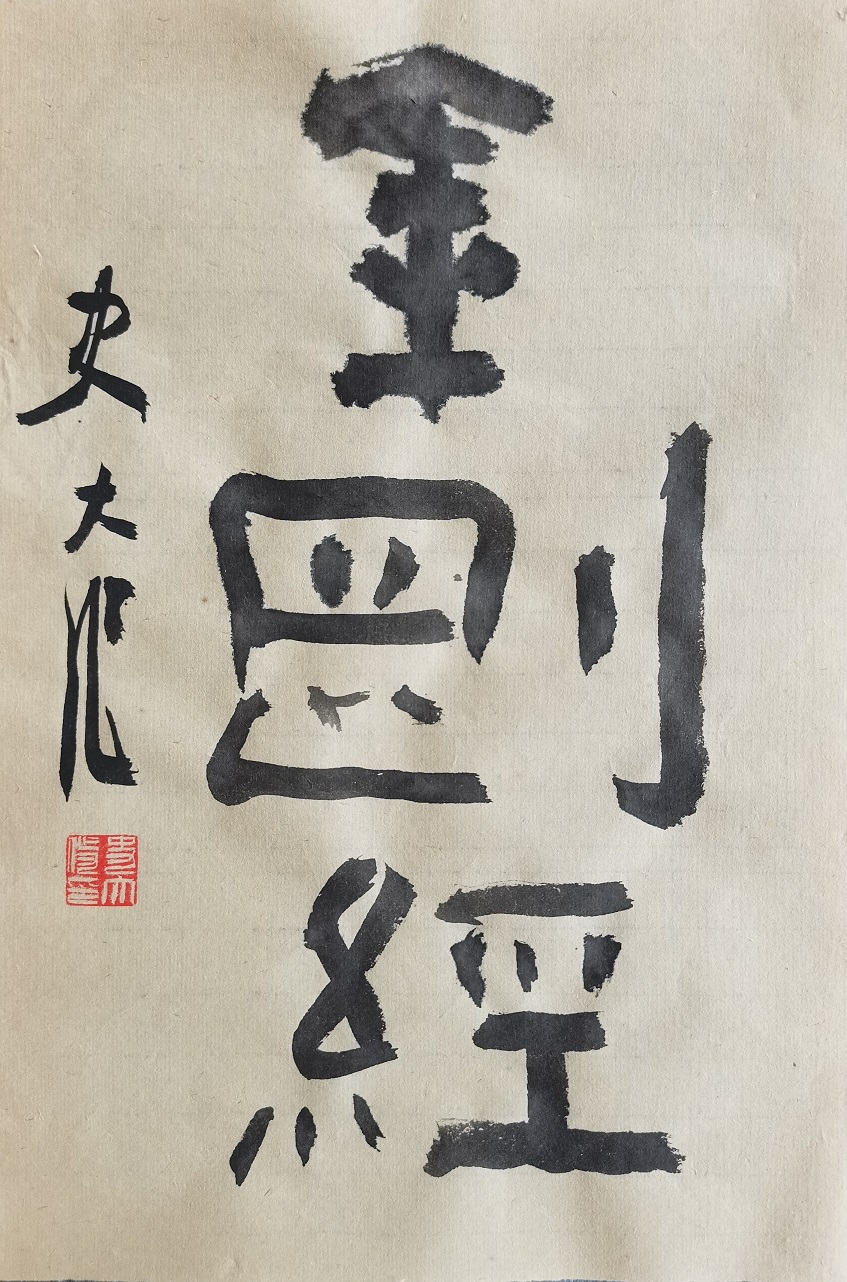 金剛經
史大